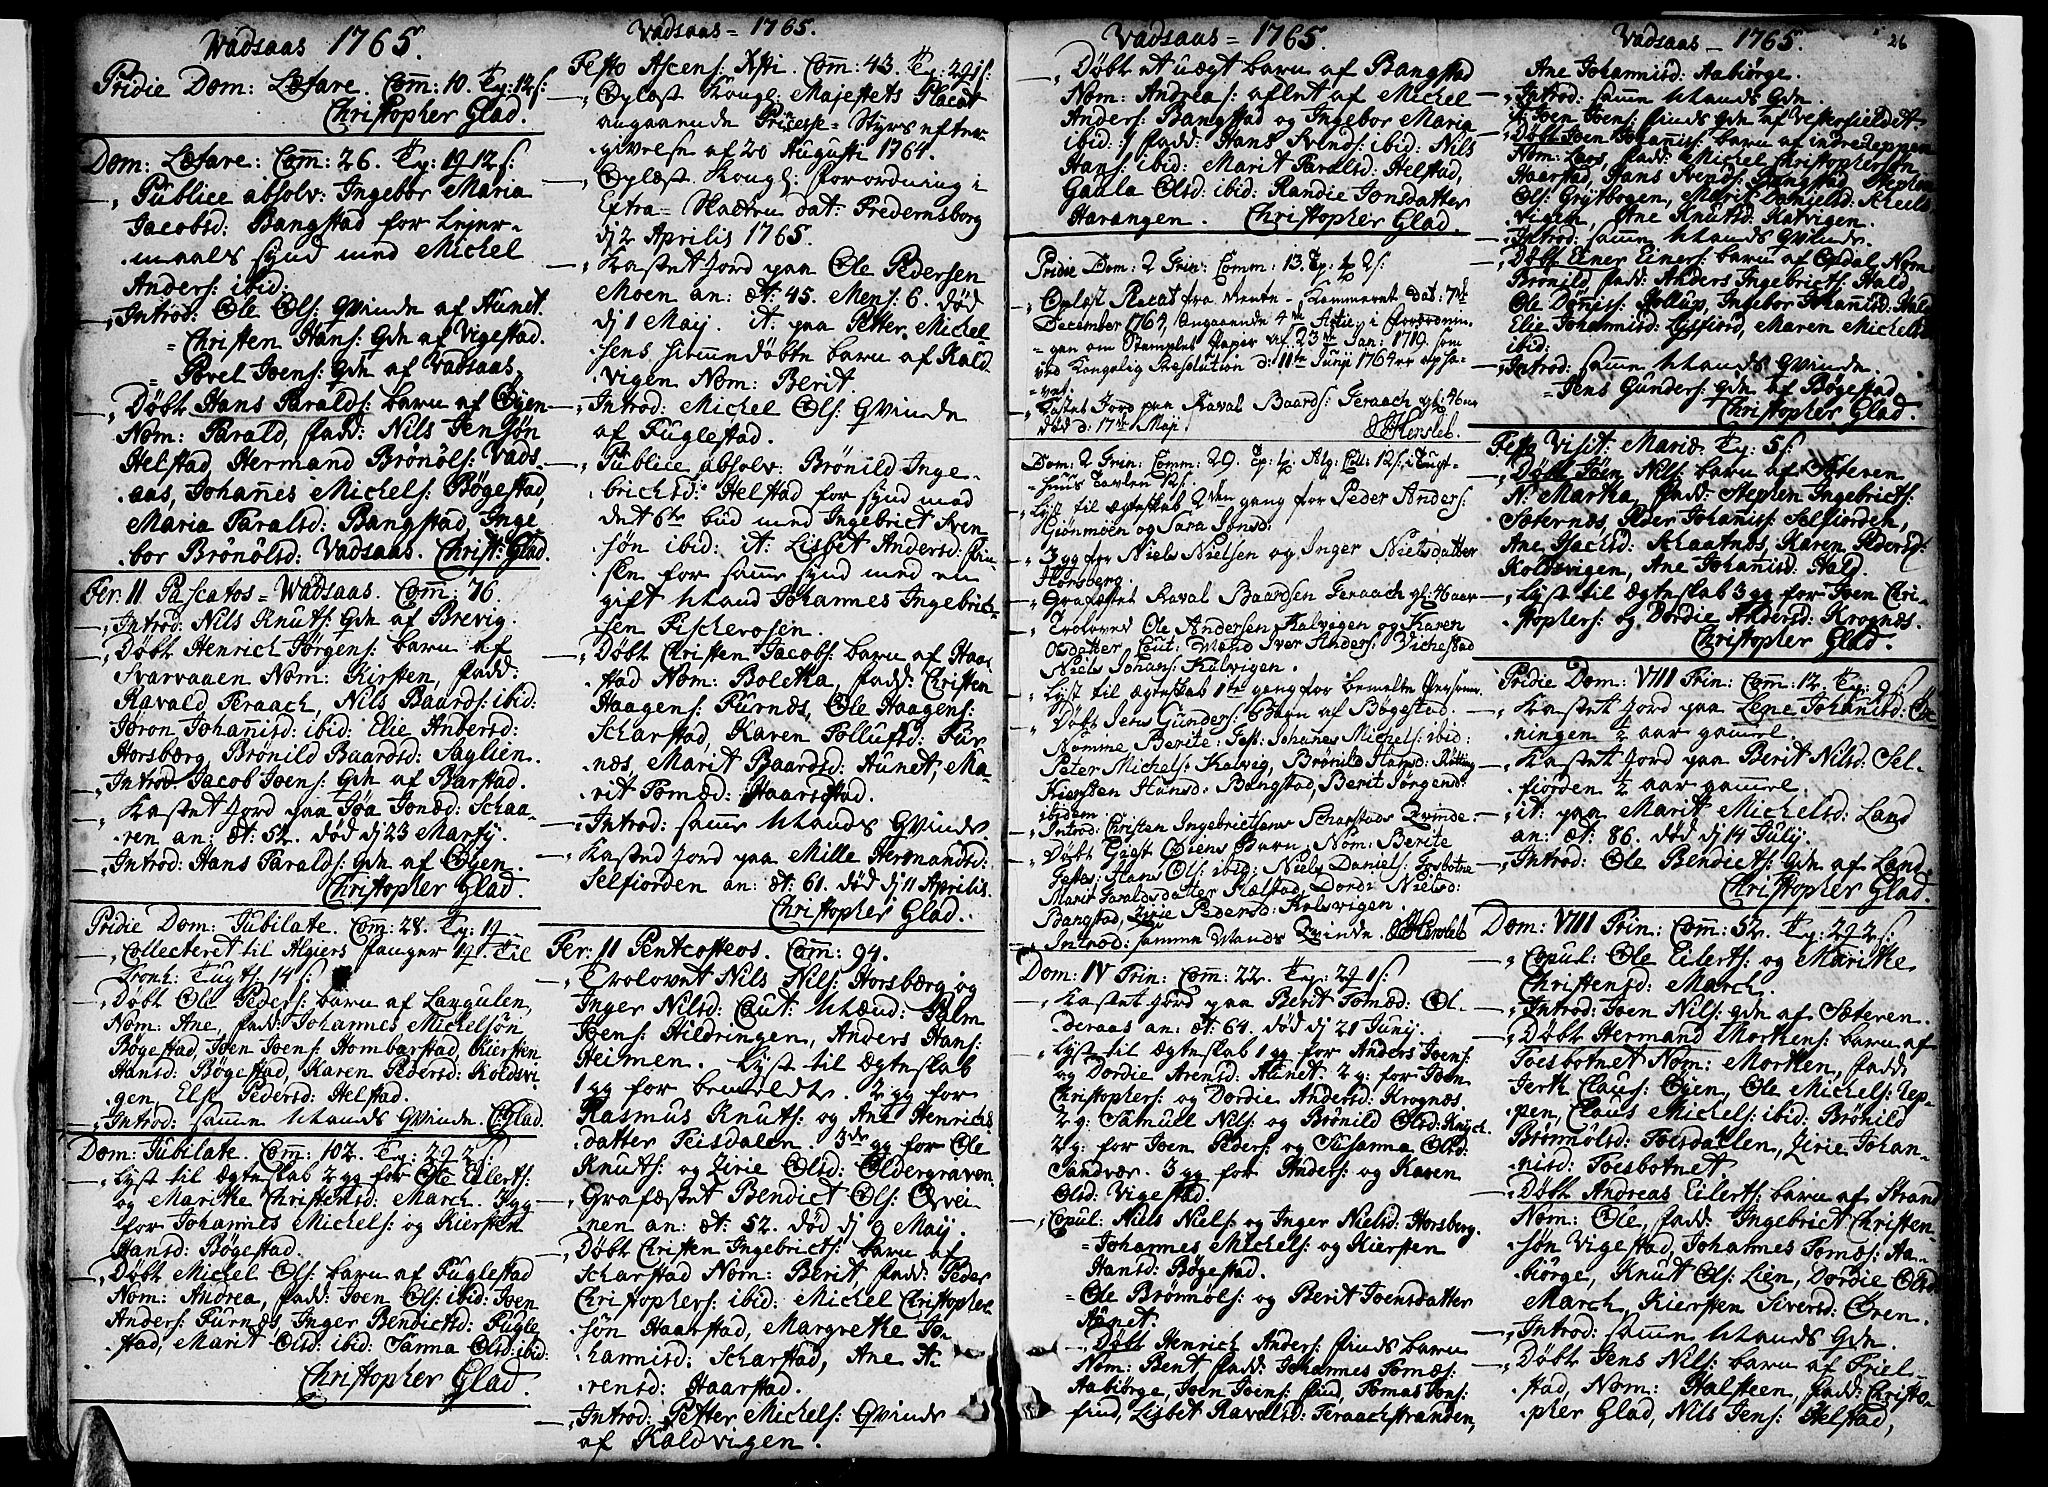 Wadsaas 1765.
Pridie Dom: Lætare. Com̄: 10. Tz: 12 s:
Christopher Glad.
Dom: Lætare: Com̄: 26. Tz: 19 12 s:
Publice absolv: Ingebor Maria
Jacobsd: Bangstad for Lejer-
maals synd med Michel
Anders: ibid:
Introd: Ole Ols: Qvinde af Aunet.
= Christen Hans: Qdn af Vigestad.
= Povel Joens: Qdn af Vadsaas.
Døbt Hans Taralds: barn af Øyen
Nom: Tarald, fadd: Nils Jensøn
Helstad, Hermand Brønøls: Vads-
aas, Johañes Michels: Bøgestad,
Maria Taralsd: Bangstad, Inge
bor Brønølsd: Vadsaas. Christ: Glad.
Fer: II Pascatos = Wadsaas. Com̄: 76.
Introd: Nils Knuts: Qdn af Brevig.
Døbt Henrich Jørgens: barn af
Svarvaaen Nom: Kirsten, fadd:
Ravald Teraach, Nils Baards: ibid:
Joron Johañisd: ibid: Elie Andersd:
Horsbærg, Brønild Baardsd: Saglien.
Introd: Jacob Joens: Qdn af Barstad.
Kastet Jord paa Joa Jonæd: Schaa-
ren an: æt: 52. død dj 23 Martij.
Introd: Hans Taralds: Qdn af Øyen.
Christopher Glad.
Pridie Dom: Jubilate. Com̄: 28. Tz: 19
Collecteret til Algiers fanger 19. Til
Tronh: Tugth: 14 s:
Døbt Ole Peders: barn af Langulen,
Nom: Ane, fadd: Johannes Michelsøn
Bøgestad, Joen Joens: Hombarstad, Kiersten
Hansd: Bøgestad, Karen Pedersd: Koldvi
gen, Else Pedersd: Helstad.
Introd: sam̄e Mands Qvinde. C: Glad.
Dom: Jubilate. Com̄: 102. Tz: 29 2 s:
Lyst til ægteskab 2 gg for Ole Eilerts:
og Maritke Christensd: March. 3 gg
for Johannes Michels: og Kiersten
Hansd: Bøgestad.
Døbt Michel Ols: barn af Fuglestad
Nom: Andrea, fadd: Joen Ols: ibid: Joen
Anders: Furnæs, Inger Bendictsd: Fugle
stad, Marit Olsd: ibid: Tanna Olsd: ibid:
Christopher Glad.
Vadsaas = 1765.
Festo Ascens: Xsti. Com̄: 43. Tz: 29 1 s:
Oplæst Kongl: Majestets Placat
angaaende Princesse = Styrs efter
givelse af 20 Augusti 1764.
Oplæst Kongl: forordning i
Extra = Skatten dat: Fredernsborg
dj 2 Aprilis 1765.
Kastet Jord paa Ole Pedersen
Moen an: æt: 45. Mens: 6. død
dj 1 Maij. it: paa Petter Michel-
sens hjemmedøbte barn af Kald
vigen Nom: Berit.
Introd: Michel Ols: Qvinde
af Fuglestad.
Publice absolv: Brønild Inge-
brichsd: Helstad for synd mod
det 6te bud med Ingebrict Sven
søn ibid: it: Lisbet Andersd: fin
ske for sam̄e synd med en
gift Mand Johannes Ingebrict
sen Fischerosen.
Døbt Christen Jacobs: barn af Haar
stad Nom: Boletha, fadd: Christen
Haagens: Furnæs, Ole Haagens:
Scharstad, Karen Tollufsd: Fur
næs, Marit Baardsd: Aunet, Ma-
rit Tomæd: Haarstad.
Introd: sam̄e Mands Qvinde.
Kasted Jord paa Mille Hermandsd:
Selfiorden an: æt: 61. død dj 11 Aprilis.
Christopher Glad.
Fer: II Pentcosteos. Com̄: 94.
Trolovet Nils Nils: Horsbærg og
Inger Nilsd: Caut: Mænd: Palm
Joens: Hildringen, Anders Hans:
Heimen. Lyst til ægteskab
1 gg for bemeldte. 2 gg for
Rasmus Knuts: og Ane Henrichs
datter Teisdalen. 3de gg for Ole
Knuts: og Zirie Olsd: Oldergraven.
Grafæstet Bendict Ols: Qvei
nen an: æt: 52. død dj 9 Maij.
Døbt Christen Ingebricts: barn af
Scharstad Nom: Berit, fadd: Peder
Christophers: ibid: Michel Christopher
søn Haarstad, Margrethe Jo-
hannisd: Scharstad, Ane A-
rensd: Haarstad.
Introd: Petter Michels: Qvinde
af Kaldvigen.
Vadsaas = 1765.
Døbt et uægt barn af Bangstad
Nom: Andreas: aflet af Michel
Anders: Bangstad og Ingebor Maria
ibid: fadd: Hans Svends: ibid: Nils
Hans: ibid: Marit Taralsd: Helstad,
Gaala Olsd: ibid: Randie Jonsdatter
Harangen. Christopher Glad.
Pridie Dom: 2 Trin: Comm: 13. Tz: 2 s:
Oplæst Placat fra Rente-Kammeret dat: 7de
December 1764, Angaaende 4de Artic: i forordnin-
gen om Stemplet Paper af 23de Jan: 1719. som
ved Kongelig Resolution d: 11te Junij 1764 er opha-
vet.
Kastet Jord paa Raval Baards: Teraach gl: 46 aar
død d: 17de Maj. Hersleb.
Dom: 2 Trin: Comm: 29. Tz: Alg: Coll: 12 s: i Tugt-
huus Tavlen 12 s:
Lyst til ægteskab 2den gang for Peder Anders:
Giönmoen og Sara Jonsd:
3 gg for Niels Nielsen og Inger Nielsdatter
Horsberg.
Grafæstet Raval Baardsen Teraach gl: 46 aar
Troloved Ole Andersen Kalvigen og Karen
Olsdatter Caut: Mænd Iver Anders: Vichestad
Niels Johans: Kalvigen.
Lyst til ægteskab 1te gang for bemelte Personer.
Døbt Jens Gunders: Barn af Bøgestad.
Nomine Berite: Test: Johañes Michels: ibid:
Peter Michels: Kalvig, Brønild Hansd: Røtting
Kiersten Hansd: Bangstad, Berit Jörgensd:
ibidem.
Introd: Christen Ingebrictsens Scharstads Qvinde.
Døbt Giest Øiens Barn, Nom: Berite
Testes: Hans Ols: ibid: Niels Daniels: Tosbotne
Marit Taraldsdatter Hælstad, Dordi Nielsd:
Bangstad, Zirie Pedersd: Kolsvigen.
Introd: samme Mands Qvinde. Hersleb
Dom: IV Trin: Com̄: 22. Tz: 29 1 s:
Kastet Jord paa Berit Tomæd: Ol-
deraas an: æt: 64. død dj 21 Junij.
Lyst til ægteskab 1 gg for Anders Joens:
og Dordie Arensd: Aunet. 2 g: for Joen
Christophers: og Dordie Andersd: Krognæs.
2 g: Samuel Nils: og Brønild Olsd: Knych.
2 g: for Joen Peders: og Susanna Olsd:
Sandvær. 3 gg for Anders: og Karen
Olsd: Vigestad.
Copul: Niels Niels: og Inger Nielsd: Horsberg.
= Johannes Michels: og Kiersten
Hansd: Bøgestad.
= Ole Brønnols: og Berit Joensdatter
Aunet.
Døbt Henrich Anders: finds barn
Nom: Bent fadd: Johannes Tomæs:
Aabiørge, Joen Joens: find, Tomas Jons:
find, Lisbet Ravalsd: Teraachstranden,
Vadsaas - 1765. 26
Ane Johannisd: Aabiørge.
Introd: sam̄e Mands Qdn.
it Joen Joens: finds Qdn af Vesterfieldet.
Døbt Joen Johañis: barn af indre Leppen
Nom: Lars, fadd: Michel Christophersøn
Haarstad, Hans Svends: Bangstad, Stephen
Ols: Grytbogen, Marit Danielsd: Scheels
vigen, Ane Knutsd: Katvigen.
Introd: sam̄e Mands Qvinde.
Døbt Einer Einers: barn af Opdal Nom:
Brønild, fadd: Anders Ingebricts: Hald,
Ole Dønnis: Gollup, Ingebor Johañisd: Hald
Elie Johannisd: Lysfiord, Maren Michelsd:
ibid:
Introd: sam̄e Mands Qvinde.
= Jens Gunders: Qdn af Bøgestad
Christopher Glad.
Festo Visit: Mariæ. Tz: 5 s:
Døbt Joen Nils: barn af Sæteren
N: Martha, fadd: Stephen Ingebricts:
Sæternæs, Peder Johañis: Selfiorden,
Ane Isachsd: Schaatnæs, Karen Pedersd:
Koldsvigen, Ane Johañisd: Hald.
Lyst til ægteskab 3 gg for Joen Chri-
stophers: og Dordie Andersd: Krognæs.
Christopher Glad.
Pridie Dom: VIII Trin: Com̄: 12. Tz: 9 s:
Kastet Jord paa Lene Johañisd:
ningen ½ aar gam̄el.
Kastet Jord paa Berit Nilsd: Sel-
fiorden ½ aar gam̄el.
it: paa Marit Michelsd: Land
an: æt: 86. død dj 14 July.
Introd: Ole Bendicts: Qdn af Land.
Christopher Glad.
Dom: VIII Trin: Com̄: 52. Tz: 29 2 s:
Copul: Ole Eilerts: og Maritke
Christensd: March.
Introd: Joen Nils: Qdn af Sæteren.
Døbt Hermand Mortens: barn af
Tosbotnet Nom: Morten, fadd:
Jerk Claus: Øyen, Ole Michels: Lep-
pen, Claus Michels: ibid: Brønild
Brønnolsd: Toesdallen, Zirie Johan-
nisd: Toesbotnet
Døbt Andreas Eilerts: barn af Strand
Nom: Ole, fadd: Ingebrict Christen-
søn Vigestad, Johannes Tomæs: Aa-
biørge, Knut Ols: Lien, Dordie Olsd:
March, Kiersten Siversd: Øren.
Introd: sam̄e Mands Qdn.
Døbt Jens Nils: barn af Friel-
stad, Nom: Halsteen, fadd: Christo-
pher Glad, Nils Jens: Helstad,